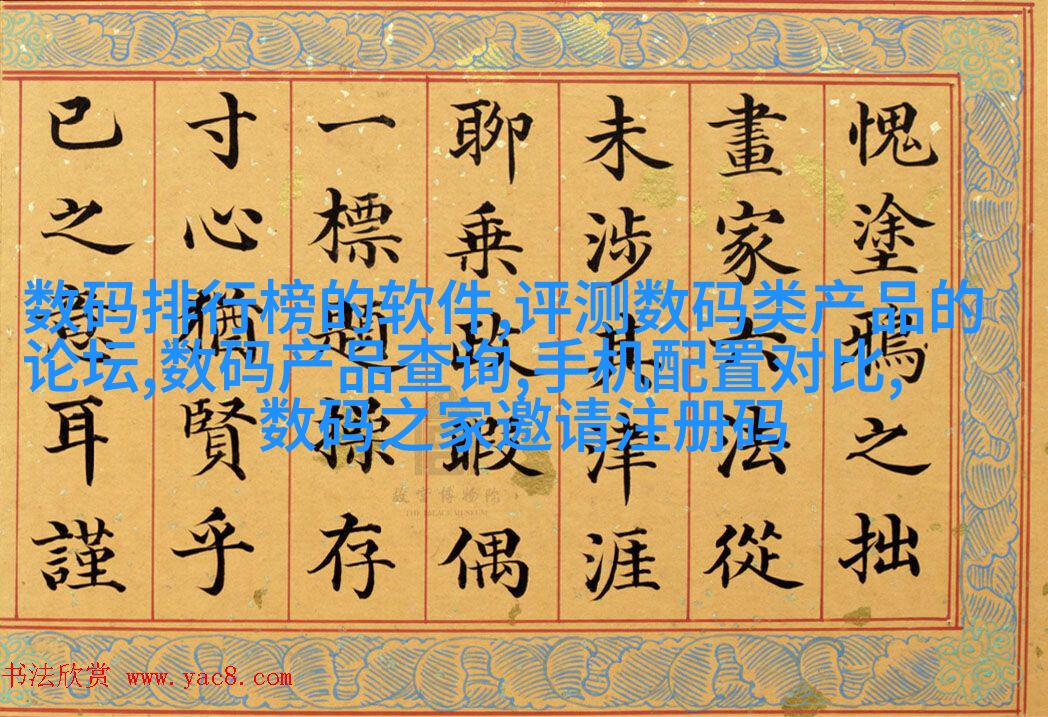 愧塗鴉之拙
畫家六法從
未涉其津涯
聊乘政暇偶
一標題操存
寸心猶賢乎
已之意耳謹
数码排行榜的软件,评测数码类产品的
论坛,数码产品查询,手机配置对比,
数码之家邀请注册码
故宫博物院
THE PALACE MUSEUM
书法欣赏 www.yac8.com